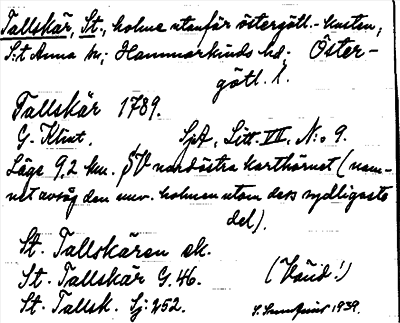 Tallskär, St., holme utanför östergötl.-kusten,
S:t Anna sn; Hammarkinds hd. Öster-
götl. l.
Tallskär 1789.
G. Klint. SjA, Litt. VII, N:o 9.
Läge 9,2 km. SV nordöstra karthörnet (nam-
net avsåg den nuv. holmen utom dess sydligaste
del).
St. Tallskären ek.
St. Tallskär G. 46. (Vänd!)
St. Tallsk. Sj. 252. 1939.